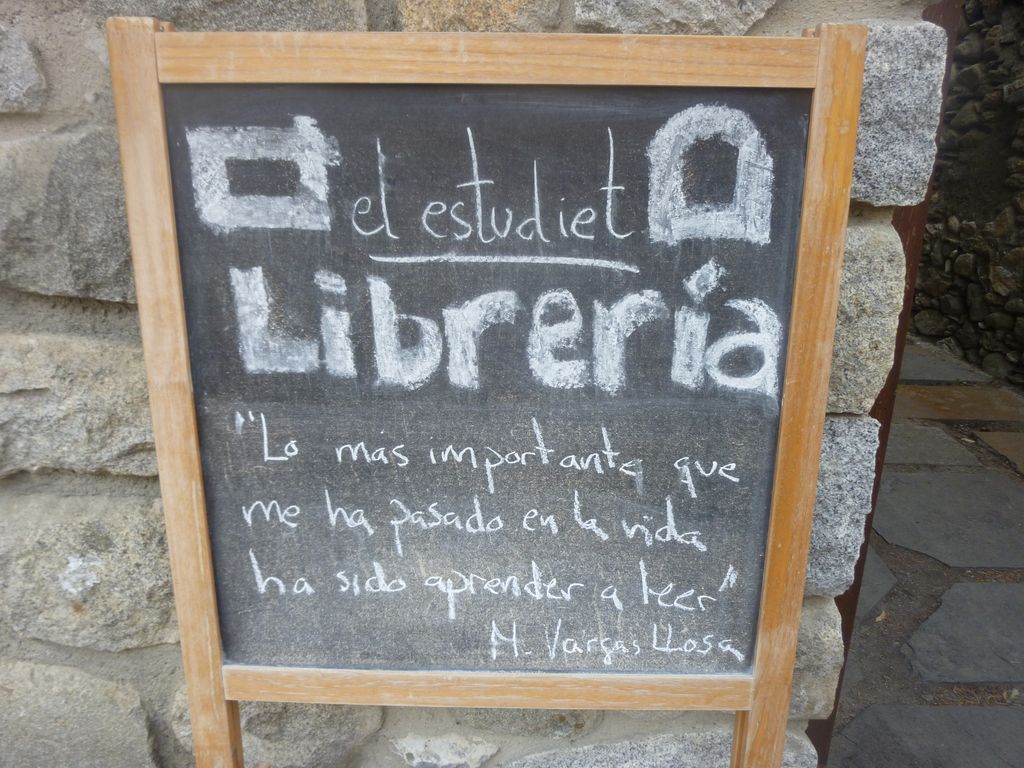 el estudiet
Librería
"Lo mas importante que
me ha pasado en la vida
ha sido aprender a leer"
M. Vargas LLosa